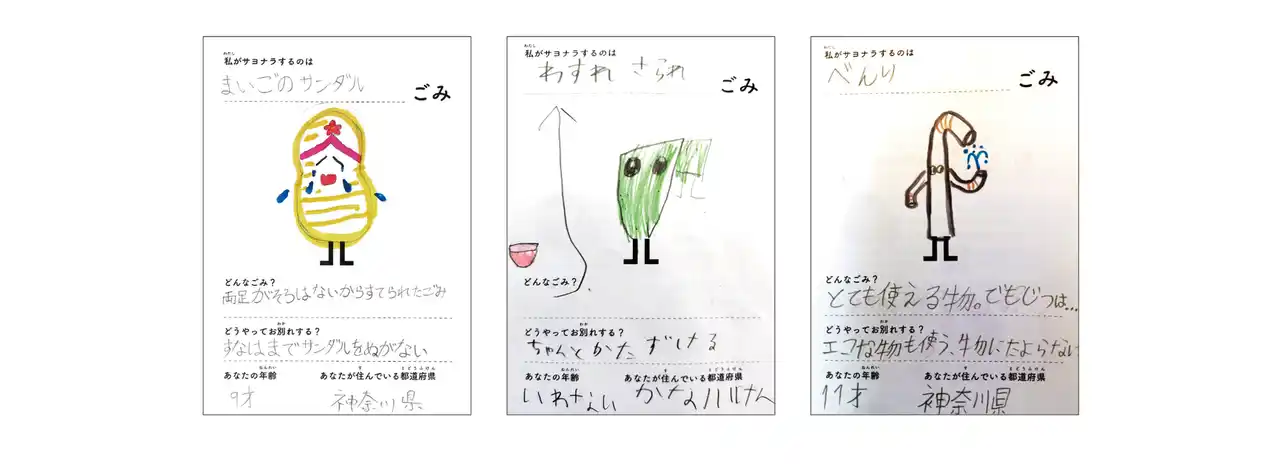 わたし
私がサヨナラするのは
まいごのサンダル
ごみ
どんなごみ？
両足がそろはないからすてられたごみ
わか
どうやってお別れする？
すなはまでサンダルをぬがない
ねんれい
す
とどうふけん
あなたの年齢
あなたが住んでいる都道府県
9才
神奈川県
わたし
私がサヨナラするのは
わすれ さられ
ごみ
どんなごみ？
わか
どうやってお別れする？
ちゃんとかたずける
ねんれい
す
とどうふけん
あなたの年齢
あなたが住んでいる都道府県
いわさない
かながわけん
わたし
私がサヨナラするのは
べんり
ごみ
どんなごみ？
とても使える物。でもじつは…
わか
どうやってお別れする？
エコな物も使う、物にたよらない
ねんれい
す
とどうふけん
あなたの年齢
あなたが住んでいる都道府県
11才
神奈川県